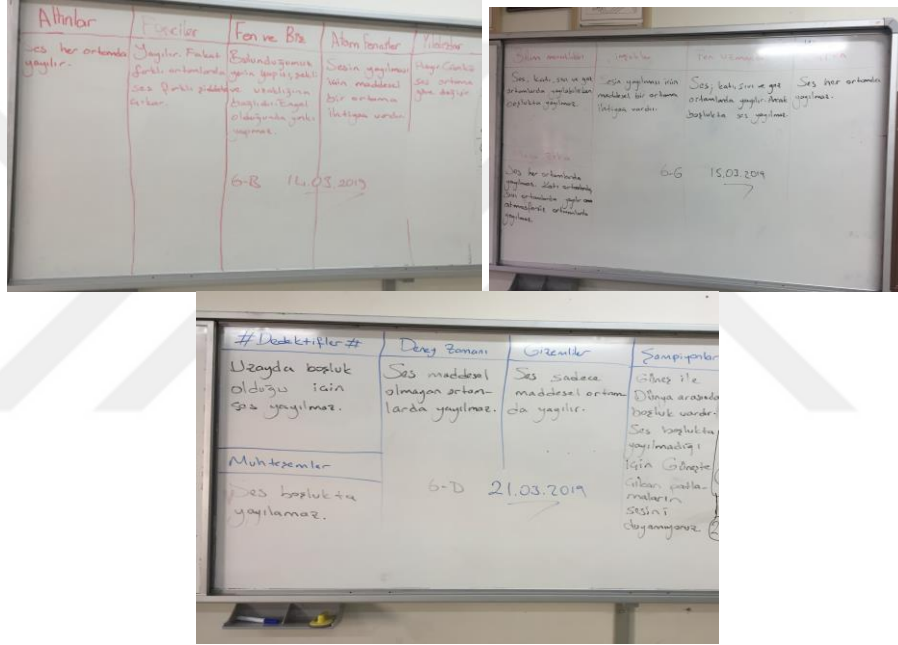 Altınlar
Ses her ortamda
yayılır.
Fizikçiler
Yayılır. Fakat
farklı ortamlarda
ses farklı şiddette
Fen ve Biz
Bulunduğumuz
yerin yapısı, şekli
ve uzaklığına
bağlıdır. Engel
olduğunda
yayılmaz.
Atom Fenerler
Sesin yayılması
için maddesel
bir ortama
ihtiyacı vardır.
Yıldızlar
Hayır. Çünkü
ses ortama
göre değişir.
6-B 14.03.2019
Ses, katı, sıvı ve gaz
ortamlarda yayılabilirken
boşlukta yayılmaz.
Sesin yayılması için
maddesel bir ortama
ihtiyacı vardır.
Ses, katı, sıvı ve gaz
ortamlarda yayılır. Ancak
boşlukta ses yayılmaz.
Ses her ortamda
yayılmaz.
Ses her ortamlarda
yayılmaz. Katı ortamlarda,
Sıvı ortamlarda yayılır ama
atmosfersiz ortamlarda
yayılmaz.
6-G 15.03.2019
# Dedektifler #
Uzayda boşluk
olduğu için
ses yayılmaz.
Muhteşemler
Ses boşlukta
yayılamaz.
Deney Zamanı
Ses maddesel
olmayan ortam-
larda yayılmaz.
Gizemliler
Ses sadece
maddesel ortam-
da yayılır.
Şampiyonlar
Güneş ile
Dünya arasında
boşluk vardır.
Ses boşlukta
yayılmadığı
için Güneşte
çıkan patla-
maların
sesini
duyamıyoruz.
6-D 21.03.2019